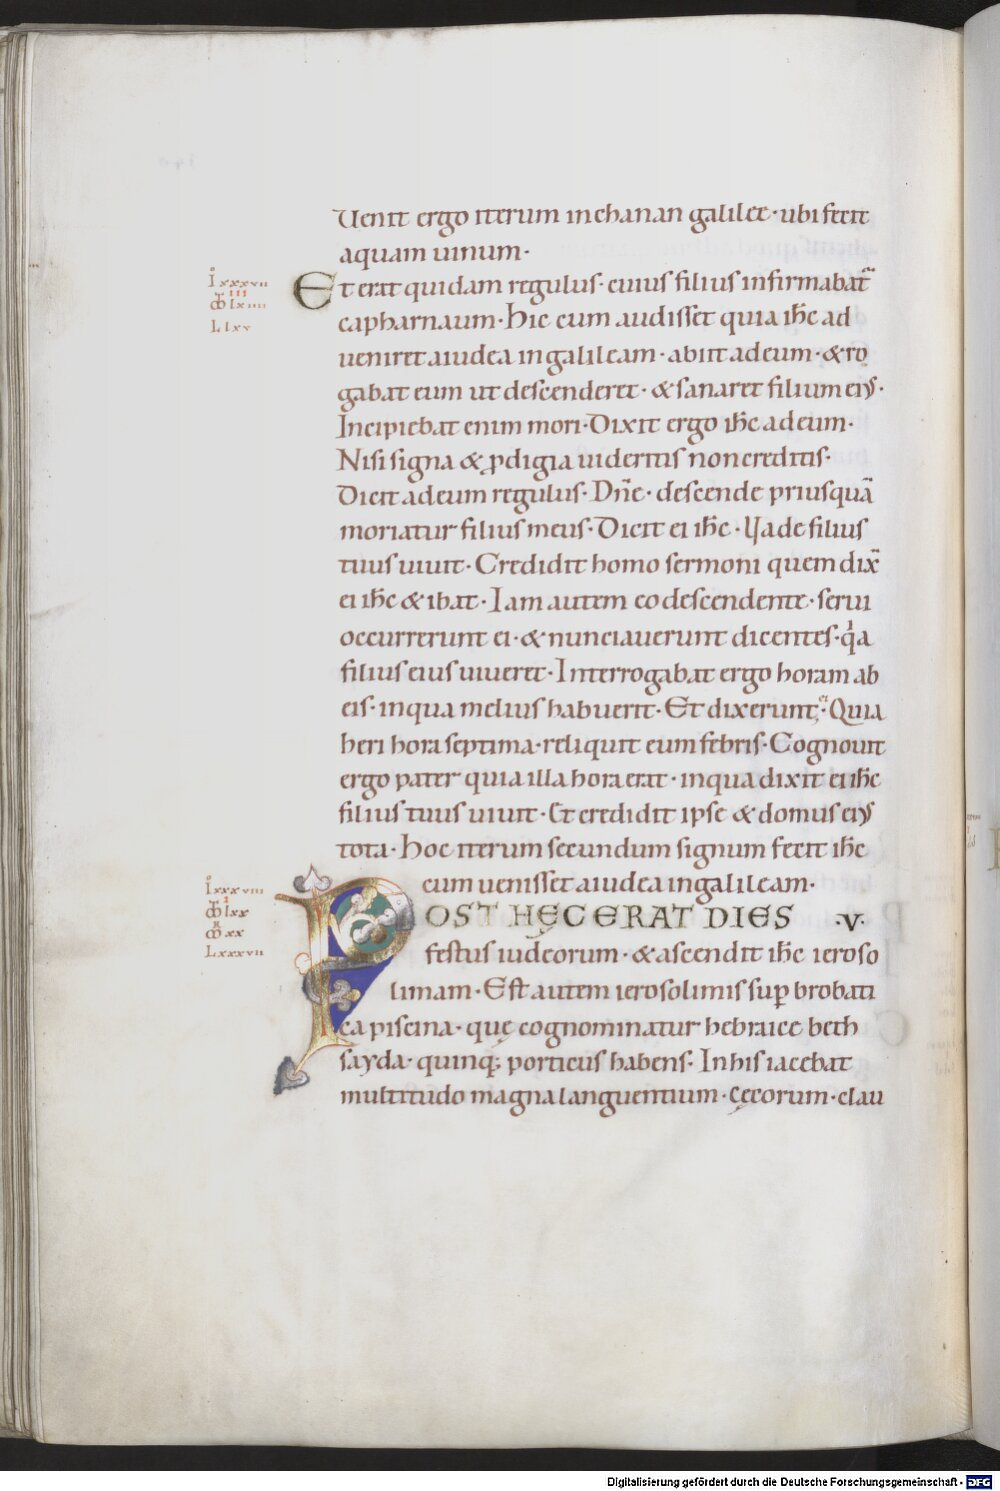 Uenit ergo iterum in chanan galileę · ubi fecit
aquam uinum ·
I xxxvii
Et erat quidam regulus · cuius filius infirmabat̄
lxiiii
capharnaum · Hic cum audisset quia ih̄c ad
L lxv
ueniret a iudea in galileam · abiit ad eum · & ro
gabat eum ut descenderet · & sanaret filium eiꝰ ·
Incipiebat enim mori · Dixit ergo ih̄c ad eum ·
Nisi signa & ꝓdigia uideritis non creditis ·
Dicit ad eum regulus · Dn̄e · descende priusquā
moriatur filius meus · Dicit ei ih̄c · Uade filius
tuus uiuit · Credidit homo sermoni quem dix̄
ei ih̄c & ibat · Iam autem eo descendente · serui
occurrerunt ei · & nunciauerunt dicentes · qͥa
filius eius uiueret · Interrogabat ergo horam ab
eis · in qua melius habuerit · Et dixerunt ei · Quia
heri hora septima · reliquit eum febris · Cognouit
ergo pater quia illa hora erat · in qua dixit ei ih̄c
filius tuus uiuit · Et credidit ipse & domus eiꝰ
tota · Hoc iterum secundum signum fecit ih̄c
I xxxviii
cum uenisset a iudea in galileam ·
lxx
POST HĘC ERAT DIES · V ·
xx
Lxxxvii
festus iudeorum · & ascendit ih̄c ieroso
limam · Est autem ierosolimis sup̄ brobati
ca piscina · quę cognominatur hebraice beth
sayda · quinq; porticus habens · In his iacebat
multitudo magna languentium · cęcorum · clau
Digitalisierung gefördert durch die Deutsche Forschungsgemeinschaft - DFG